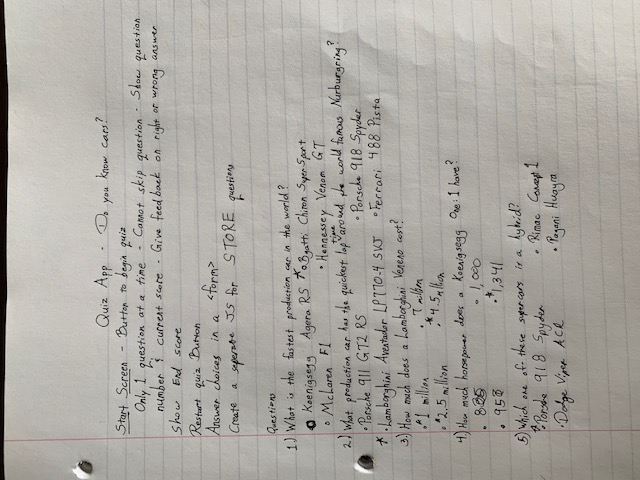 Quiz App - Do you know cars?
Start Screen - Button to begin quiz
Only 1 question at a time - Cannot skip question - Show question
number & current score - Give feedback on right or wrong answer
Show End score
Restart quiz Button
Answer choices in a <form>
Create a seperate JS for STORE questions
Questions
1.) What is the fastest production car in the world?
Koenigsegg Agera RS * Bgatti Chiron Super Sport
McLaren F1 Hennessey Venom GT
2.) What production car has the quickest lap time around the world famous Nurburgring?
Porsche 911 GT2 RS Porsche 918 Spyder
* Lamborghini Aventador LP770-4 SVJ Ferrari 488 Pista
3.) How much does a Lamborghini Veneno cost?
1 million 7 million
2.5 million * 4.5 million
4.) How much horsepower does a Koenigsegg One:1 have?
835 1,000
953 * 1,341
5.) Which one of these supercars is a hybrid?
* Porsche 918 Spyder Rimac Concept 1
Dodge Viper ACR Pagani Huayra